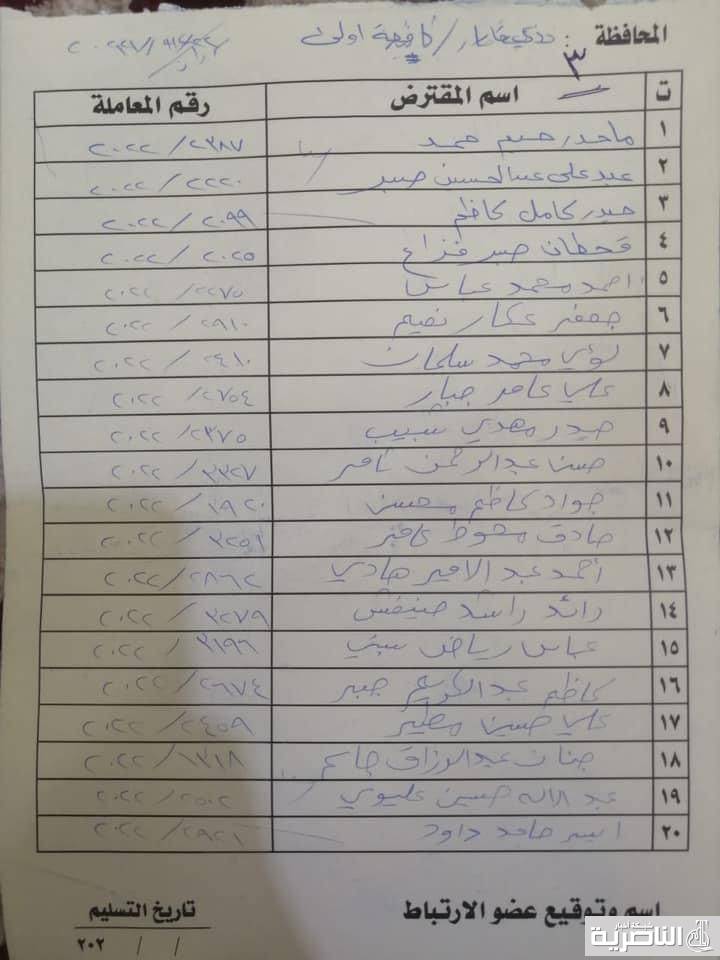 المحافظة : ذي قار / دفعة اولى
٣
ت اسم المقترض رقم المعاملة
١ ماجد رحيم حمد ٢٣٨٧/ ٢٠٢٢
٢ عبد علي عبد الحسين صبر ٢٢٢٠/ ٢٠٢٢
٣ حيدر كامل كاظم ٢٠٩٩/ ٢٠٢٢
٤ قحطان صبر فزاع ٢٠٢٥/ ٢٠٢٢
٥ احمد محمد عباس ٢٢٧٥/ ٢٠٢٢
٦ جعفر عكار نعيم ٢٩١٠/ ٢٠٢٢
٧ لؤي محمد سلمان ٢٤١٠/ ٢٠٢٢
٨ علي عامر جبار ٢٧٥٤/ ٢٠٢٢
٩ حيدر مهدي شبيب ٢٣٧٥/ ٢٠٢٢
١٠ حسن عبد الرحمن ثامر ٣٣٢٧/ ٢٠٢٢
١١ جواد كاظم محسن ١٩٢٠/ ٢٠٢٢
١٢ صادق ٣٢٥١/ ٢٠٢٢
١٣ أحمد عبد الامير هادي ٢٨٦٢/ ٢٠٢٢
١٤ رائد راشد ٣٢٧٩/ ٢٠٢٢
١٥ عباس رياض ٣١٩٦/ ٢٠٢٢
١٦ كاظم عبد الكريم جبر ٢٦٧٤/ ٢٠٢٢
١٧ علي حسن مطير ٢٤٥٩/ ٢٠٢٢
١٨ جنان عبد الرزاق جاسم ١٣١٨/ ٢٠٢٢
١٩ عبد الله حسين عليوي ٢٥٠٢/ ٢٠٢٢
٢٠ حامد داود ٢٩٢١/ ٢٠٢٢
اسم وتوقيع عضو الارتباط تاريخ التسليم
/ / ٢٠٢
شبكة أخبار
الناصرية